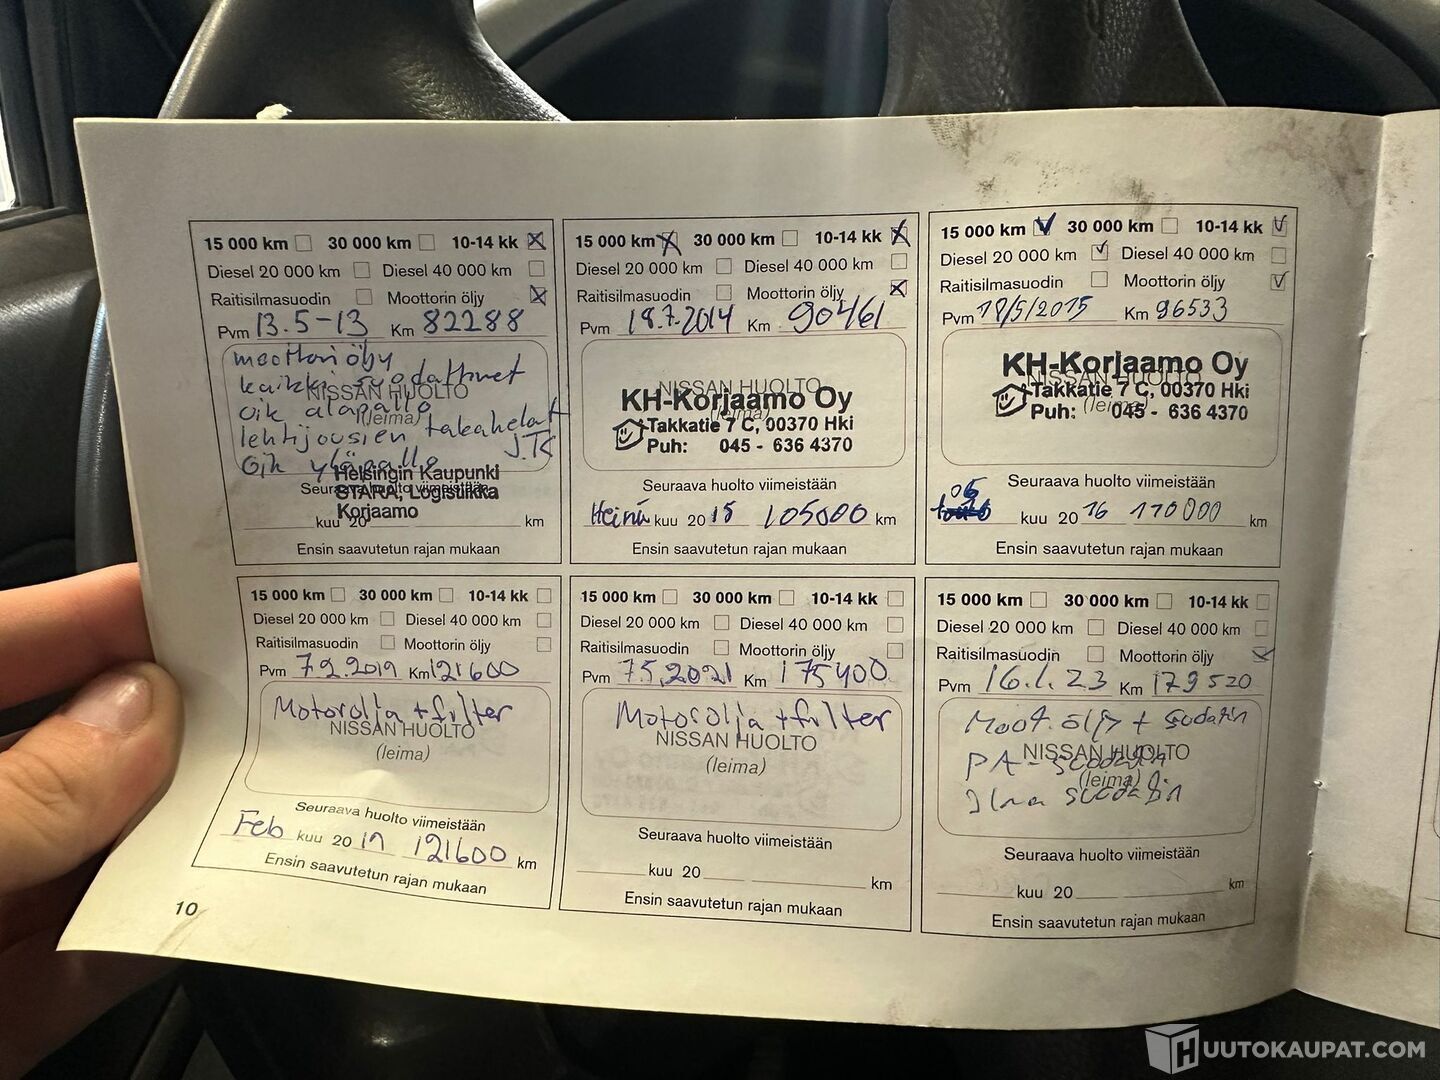 15 000 km 30 000 km 10-14 kk
Diesel 20 000 km Diesel 40 000 km
Raitisilmasuodin Moottorin öljy
Pvm 13.5-13 Km 82288
moottori öljy
kaikki suodattimet
NISSAN HUOLTO
oik alapallo
(leima)
lehtijousien takahelat
J.TK
oik yläpallo
Helsingin Kaupunki
Seuraava huolto viimeistään
STARA, Logistiikka
Korjaamo
kuu 20 km
Ensin saavutetun rajan mukaan
15 000 km 30 000 km 10-14 kk
Diesel 20 000 km Diesel 40 000 km
Raitisilmasuodin Moottorin öljy
Pvm 18.7.2014 Km 90461
NISSAN HUOLTO
KH-Korjaamo Oy
(leima)
Takkatie 7 C, 00370 Hki
Puh: 045 - 636 4370
Seuraava huolto viimeistään
Heinä kuu 20 15 105000 km
Ensin saavutetun rajan mukaan
15 000 km 30 000 km 10-14 kk
Diesel 20 000 km Diesel 40 000 km
Raitisilmasuodin Moottorin öljy
Pvm 18/5/2015 Km 96533
KH-Korjaamo Oy
NISSAN HUOLTO
Takkatie 7 C, 00370 Hki
(leima)
Puh: 045 - 636 4370
Seuraava huolto viimeistään
05 kuu 20 16 110000 km
Ensin saavutetun rajan mukaan
15 000 km 30 000 km 10-14 kk
Diesel 20 000 km Diesel 40 000 km
Raitisilmasuodin Moottorin öljy
Pvm Km 121600
Motorolja + filter
NISSAN HUOLTO
(leima)
Seuraava huolto viimeistään
Feb kuu 20 121600 km
Ensin saavutetun rajan mukaan
15 000 km 30 000 km 10-14 kk
Diesel 20 000 km Diesel 40 000 km
Raitisilmasuodin Moottorin öljy
Pvm 7.5.2021 Km 175400
Motorolja + filter
NISSAN HUOLTO
(leima)
Seuraava huolto viimeistään
kuu 20 km
Ensin saavutetun rajan mukaan
15 000 km 30 000 km 10-14 kk
Diesel 20 000 km Diesel 40 000 km
Raitisilmasuodin Moottorin öljy
Pvm 16.1.23 Km 179520
Moot.öljy + suodatin
NISSAN HUOLTO
PA-suodatin
(leima)
Ilma suodatin
Seuraava huolto viimeistään
kuu 20 km
Ensin saavutetun rajan mukaan
10
HUUTOKAUPAT.COM